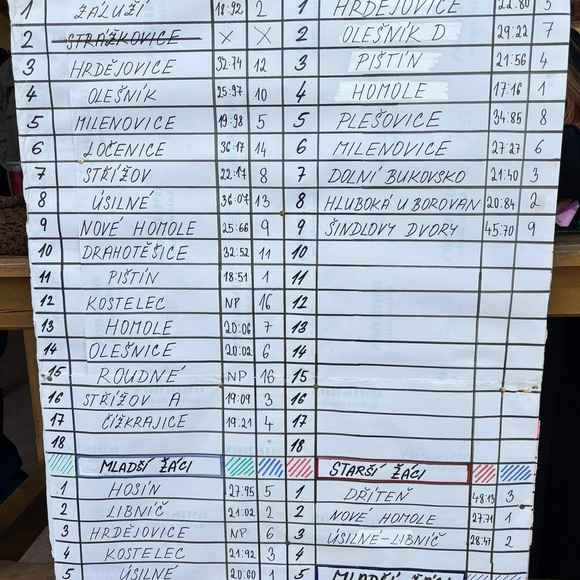 1 ZÁLUŽÍ 18:92 2
2 STRÁŽKOVICE X X
3 HRDĚJOVICE 32:74 12
4 OLEŠNÍK 25:97 10
5 MILENOVICE 19:98 5
6 LOČENICE 36:17 14
7 STŘÍŽOV 22:17 8
8 ÚSILNÉ 36:07 13
9 NOVÉ HOMOLE 25:66 9
10 DRAHOTĚŠICE 32:52 11
11 PIŠTÍN 18:51 1
12 KOSTELEC NP 16
13 HOMOLE 20:06 7
14 OLEŠNICE 20:02 6
15 ROUDNÉ NP 16
16 STŘÍŽOV A 19:09 3
17 ČÍŽKRAJICE 19:21 4
18
MLADŠÍ ŽÁCI
1 HOSÍN 27:95 5
2 LIBNÍČ 21:02 2
3 HRDĚJOVICE NP 6
4 KOSTELEC 21:92 3
5 ÚSILNÉ 20:60 1
1 HRDĚJOVICE 22:80 5
2 OLEŠNÍK D 29:22 7
3 PIŠTÍN 21:56 4
4 HOMOLE 17:16 1
5 PLEŠOVICE 34:85 8
6 MILENOVICE 27:27 6
7 DOLNÍ BUKOVSKO 21:40 3
8 HLUBOKÁ U BOROVAN 20:84 2
9 ŠINDLOVY DVORY 45:70 9
10
11
12
13
14
15
16
17
18
STARŠÍ ŽÁCI
1 DŘÍTEŇ 48:13 3
2 NOVÉ HOMOLE 27:71 1
3 ÚSILNÉ-LIBNÍČ 28:47 2
4
5
MLADŠÍ ŽÁCI